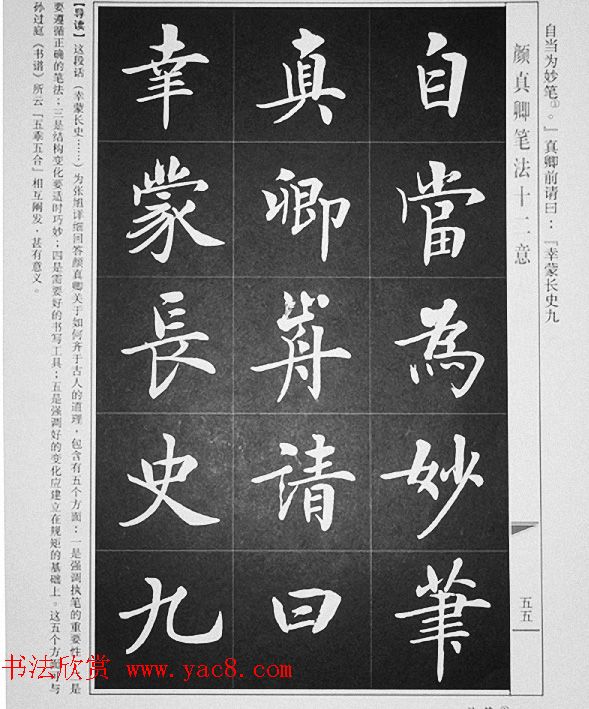 自当为妙笔①。』真卿前请曰：『幸蒙长史九
颜真卿笔法十二意
五五
自當為妙筆
真卿前請曰
幸蒙長史九
【导读】这段话（幸蒙长史……）为张旭详细回答颜真卿关于如何齐于古人的道理，包含有五个方面：一是强调执笔的重要性
是要遵循正确的笔法；三是结构变化要适时巧妙；四是需要好的书写工具；五是强调好的变化应建立在规矩的基础上。这五个方面
与孙过庭《书谱》所云『五乖五合』相互阐发，甚有意义。
书法欣赏 www.yac8.com